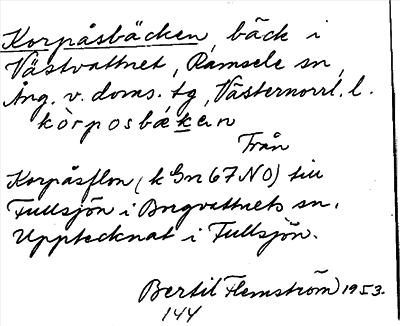 Korpåsbäcken, bäck i
Västvattnet, Ramsele sn,
Ång. v. doms. tg, Västernorrl. l.
kòrposbækan
Från
Korpåsflon (k Gn 67 NO) till
Fullsjön i Ångvattnets sn.
Upptecknat i Fullsjön.
Bertil Flemström 1953.
144